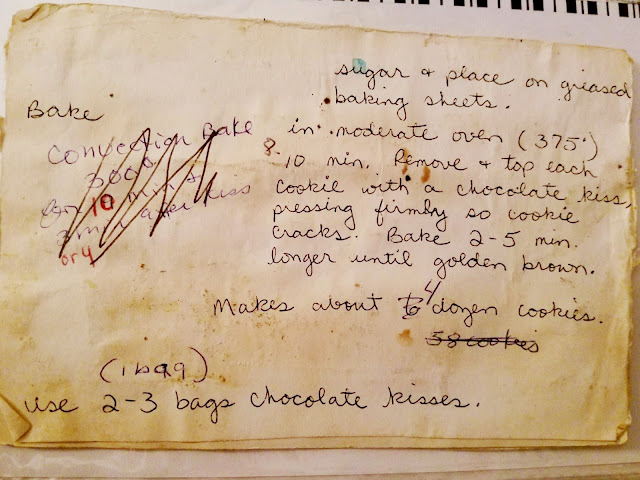 sugar & place on greased
baking sheets.
Bake
in moderate oven (375°)
8-10 min. Remove & top each
cookie with a chocolate kiss,
pressing firmly so cookie
cracks. Bake 2-5 min.
longer until golden brown.
Convection Bake
300°
10 min
kiss
or 4
Makes about 4 dozen cookies.
58 cookies
(1 bag)
use 2-3 bags chocolate kisses.